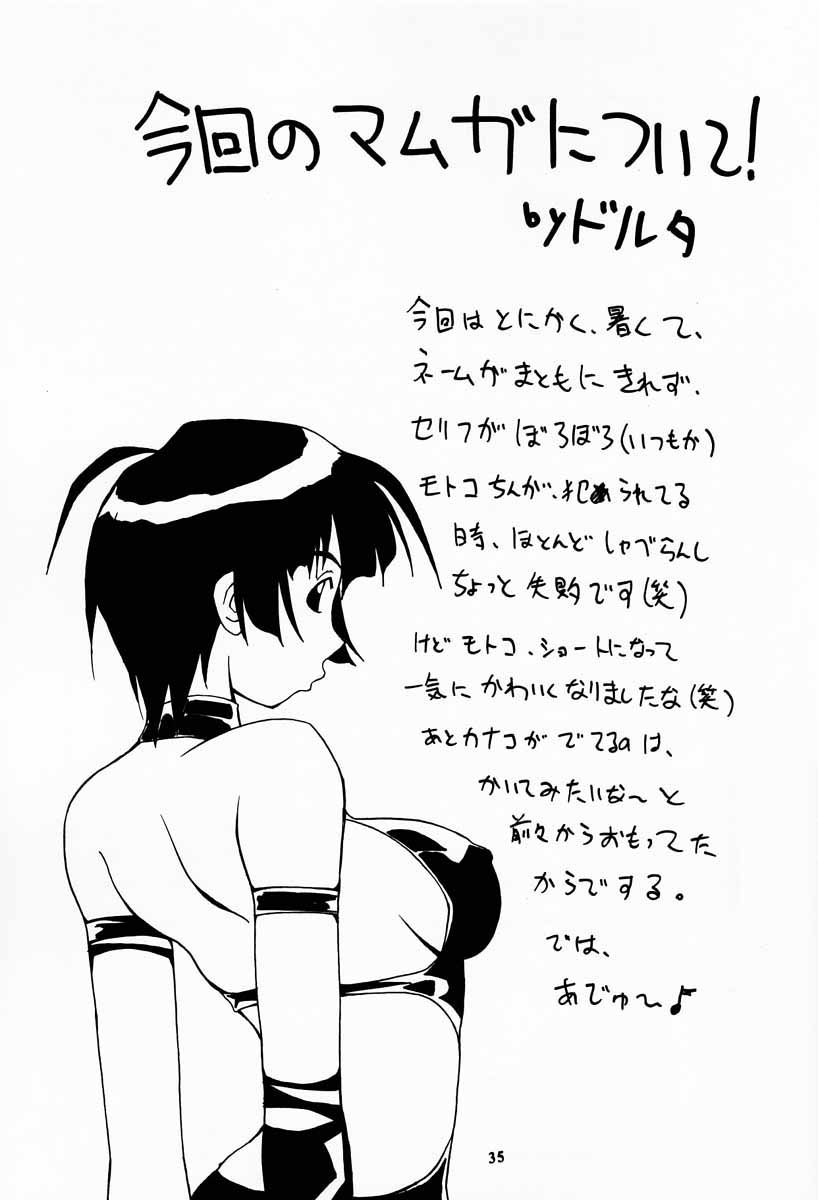 今回のマムガについて!
byドルタ
今回はとにかく、暑くて、
ネームがまともにきれず、
セリフがぼろぼろ(いつもか)
モトコちんが、犯められてる
時、ほとんどしゃべらんし
ちょっと失敗です(笑)
けどモトコ、ショートになって
一気にかわいくなりましたな(笑)
あとカナコがでてるのは、
かいてみたいな〜と
前々からおもってた
からでする。
では、
あでゅ〜♪
35